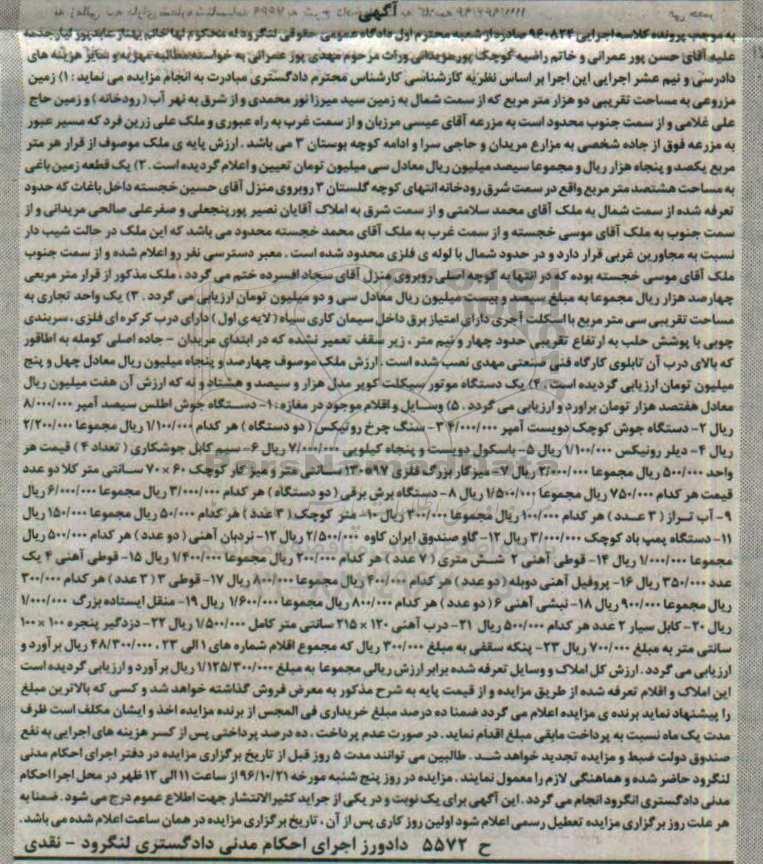 آگهی
به موجب پرونده کلاسه اجرایی ۹۶۰۸۲۴ صادره از شعبه محترم اول دادگاه عمومی حقوقی لنگرود له محکوم لها خانم بهناز عابدپور لیارجدمه
علیه آقای حسن پور عمرانی و خانم راضیه کوچک پور مریدانی وراث مرحوم مهدی پور عمرانی به خواسته مطالبه مهریه و سایر هزینه های
دادرسی و نیم عشر اجرایی این اجرا بر اساس نظریه کارشناسی کارشناس محترم دادگستری مبادرت به انجام مزایده می نماید : ۱) زمین
مزروعی به مساحت تقریبی دو هزار متر مربع که از سمت شمال به زمین سید میرزا نور محمدی و از شرق به نهر آب ( رودخانه ) و زمین حاج
علی غلامی و از سمت جنوب محدود است به مزرعه آقای عیسی مرزبان و از سمت غرب به راه عبوری و ملک علی زرین فرد که مسیر عبور
به مزرعه فوق از جاده شخصی به مزارع مریدان و حاجی سرا و ادامه کوچه بوستان ۳ می باشد . ارزش پایه ی ملک موصوف از قرار هر متر
مربع یکصد و پنجاه هزار ریال و مجموعا سیصد میلیون ریال معادل سی میلیون تومان تعیین و اعلام گردیده است . ۲) یک قطعه زمین باغی
به مساحت هشتصد متر مربع واقع در سمت شرق رودخانه انتهای کوچه گلستان ۳ روبروی منزل آقای حسین خجسته داخل باغات که حدود
تعرفه شده از سمت شمال به ملک آقای محمد سلامتی و از سمت شرق به املاک آقایان نصیر پورپنجعلی و صفرعلی صالحی مریدانی و از
سمت جنوب به ملک آقای موسی خجسته و از سمت غرب به ملک آقای محمد خجسته محدود می باشد که این ملک در حالت شیب دار
نسبت به مجاورین غربی قرار دارد و در حدود شمال با لوله ی فلزی محدود شده است . معبر دسترسی نفر رو اعلام شده و از سمت جنوب
ملک آقای موسی خجسته بوده که در انتها به کوچه اصلی روبروی منزل آقای سجاد افسرده ختم می گردد ، ملک مذکور از قرار متر مربعی
چهارصد هزار ریال مجموعا به مبلغ سیصد و بیست میلیون ریال معادل سی و دو میلیون تومان ارزیابی می گردد . ۳) یک واحد تجاری به
مساحت تقریبی سی متر مربع با اسکلت آجری دارای امتیاز برق داخل سیمان کاری سیاه ( لایه ی اول ) دارای درب کرکره ای فلزی ، سربندی
چوبی با پوشش حلب به ارتفاع تقریبی حدود چهار و نیم متر ، زیر سقف تعمیر نشده که در ابتدای مریدان - جاده اصلی کومله به اطاقور
که بالای درب آن تابلوی کارگاه فنی صنعتی مهدی نصب شده است . ارزش ملک موصوف چهارصد و پنجاه میلیون ریال معادل چهل و پنج
میلیون تومان ارزیابی گردیده است . ۴) یک دستگاه موتور سیکلت کویر مدل هزار و سیصد و هشتاد و نه که ارزش آن هفت میلیون ریال
معادل هفتصد هزار تومان براورد و ارزیابی می گردد . ۵) وسایل و اقلام موجود در مغازه : ۱- دستگاه جوش اطلس سیصد آمپر ۸/۰۰۰/۰۰۰
ریال ۲- دستگاه جوش کوچک دویست آمپر ۴/۰۰۰/۰۰۰ ۳- سنگ چرخ رونیکس ( دو دستگاه ) هر کدام ۱/۱۰۰/۰۰۰ ریال مجموعا ۲/۲۰۰/۰۰۰
ریال ۴- دیلر رونیکس ۱/۱۰۰/۰۰۰ ریال ۵- باسکول دویست و پنجاه کیلویی ۷/۰۰۰/۰۰۰ ریال ۶- سیم کابل جوشکاری ( تعداد ۴ ) قیمت هر
واحد ۵۰۰/۰۰۰ ریال مجموعا ۲/۰۰۰/۰۰۰ ریال ۷- میزکار بزرگ فلزی ۹۷×۱۳۰ سانتی متر و میز کار کوچک ۶۰ × ۷۰ سانتی متر کلا دو عدد
قیمت هر کدام ۷۵۰/۰۰۰ ریال مجموعا ۱/۵۰۰/۰۰۰ ریال ۸- دستگاه برش برقی ( دو دستگاه ) هر کدام ۳/۰۰۰/۰۰۰ ریال مجموعا ۶/۰۰۰/۰۰۰ ریال
۹- آب تراز ( ۳ عدد ) هر کدام ۱۰۰/۰۰۰ ریال مجموعا ۳۰۰/۰۰۰ ریال ۱۰- متر کوچک ( ۳ عدد ) هر کدام ۵۰/۰۰۰ ریال مجموعا ۱۵۰/۰۰۰ ریال
۱۱- دستگاه پمپ باد کوچک ۳/۰۰۰/۰۰۰ ریال ۱۲- گاو صندوق ایران کاوه ۲/۵۰۰/۰۰۰ ریال ۱۳- نردبان آهنی ( دو عدد ) هر کدام ۵۰۰/۰۰۰ ریال
مجموعا ۱/۰۰۰/۰۰۰ ریال ۱۴- قوطی آهنی ۲ شش متری ( ۷ عدد ) هر کدام ۲۰۰/۰۰۰ ریال مجموعا ۱/۴۰۰/۰۰۰ ریال ۱۵- قوطی آهنی ۴ یک
عدد ۳۵۰/۰۰۰ ریال ۱۶- پروفیل آهنی دوبله ( دو عدد ) هر کدام ۴۰۰/۰۰۰ ریال مجموعا ۸۰۰/۰۰۰ ریال ۱۷- قوطی ۳ ( ۳ عدد ) هر کدام ۳۰۰/۰۰۰
ریال مجموعا ۹۰۰/۰۰۰ ریال ۱۸- نبشی آهنی ۶ ( دو عدد ) هر کدام ۸۰۰/۰۰۰ ریال مجموعا ۱/۶۰۰/۰۰۰ ریال ۱۹- منقل ایستاده بزرگ ۱/۰۰۰/۰۰۰
ریال ۲۰- کابل سیار ۲ عدد هر کدام ۵۰۰/۰۰۰ ریال ۲۱- درب آهنی ۱۲۰ × ۲۱۵ سانتی متر کامل ۱/۵۰۰/۰۰۰ ریال ۲۲- دزدگیر پنجره ۱۰۰ × ۱۰۰
سانتی متر به مبلغ ۷۰۰/۰۰۰ ریال ۲۳- پنکه سقفی به مبلغ ۳۰۰/۰۰۰ ریال که مجموع اقلام شماره های ۱ الی ۲۳ ، ۴۸/۳۰۰/۰۰۰ ریال برآورد و
ارزیابی می گردد . ارزش کل املاک و وسایل تعرفه شده برابر ارزش ریالی مجموعا به مبلغ ۱/۱۲۵/۳۰۰/۰۰۰ ریال برآورد و ارزیابی گردیده است
این املاک و اقلام تعرفه شده از طریق مزایده و از قیمت پایه به شرح مذکور به معرض فروش گذاشته خواهد شد و کسی که بالاترین مبلغ
را پیشنهاد نماید برنده ی مزایده اعلام می گردد ضمنا ده درصد مبلغ خریداری فی المجس از برنده مزایده اخذ و ایشان مکلف است ظرف
مدت یک ماه نسبت به پرداخت مابقی مبلغ اقدام نماید . در صورت عدم پرداخت ، ده درصد پرداختی پس از کسر هزینه های اجرایی به نفع
صندوق دولت ضبط و مزایده تجدید خواهد شد . طالبین می توانند مدت ۵ روز قبل از تاریخ برگزاری مزایده در دفتر اجرای احکام مدنی
لنگرود حاضر شده و هماهنگی لازم را معمول نمایند . مزایده در روز پنج شنبه مورخه ۹۶/۱۰/۲۱ از ساعت ۱۱ الی ۱۲ ظهر در محل اجرا احکام
مدنی دادگستری لنگرود انجام می گردد . این آگهی برای یک نوبت و در یکی از جراید کثیرالانتشار جهت اطلاع عموم درج می شود . ضمنا به
هر علت روز برگزاری مزایده تعطیل رسمی اعلام شود اولین روز کاری پس از آن ، تاریخ برگزاری مزایده در همان ساعت اعلام شده می باشد .
ح ۵۵۷۲ دادورز اجرای احکام مدنی دادگستری لنگرود - نقدی